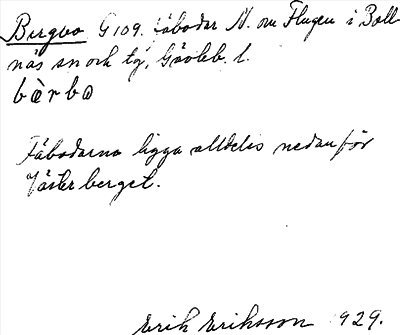 Bergbo G 109. Fäbodar N. om Flugen i Boll-
näs sn och tg, Gävleb. l.
bèrbo
Fäbodarna ligga alldeles nedanför
Västerberget.
Erik Eriksson 1929.